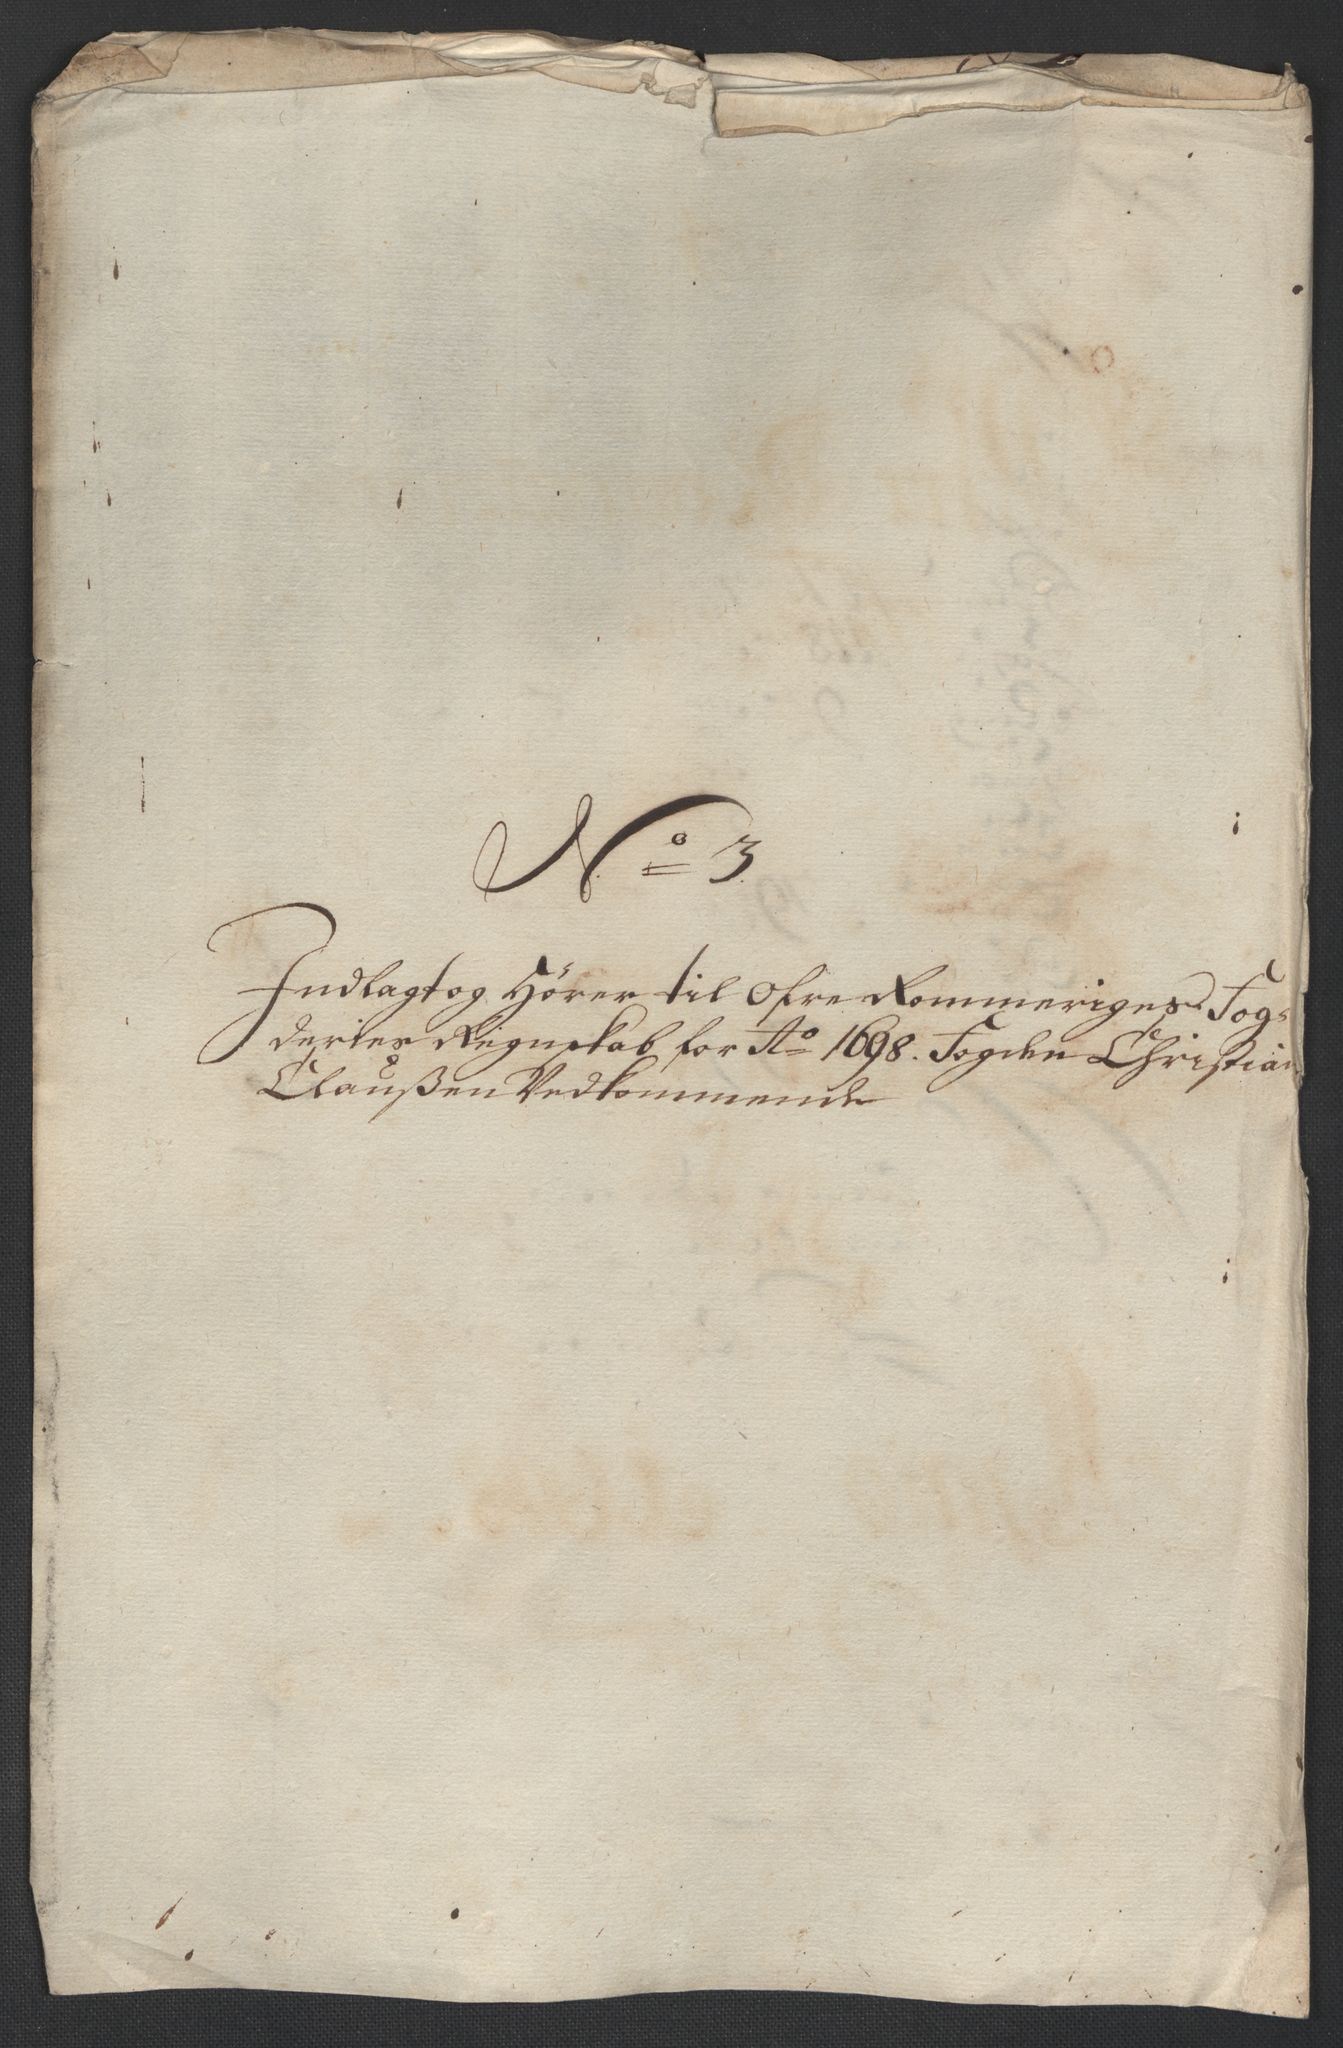 No 3
Indlagt og Hörer til Ofre Rommeriges Fog-
deries Regnskab for Ao 1698. Fogden Christian
Claußen Vedkommende